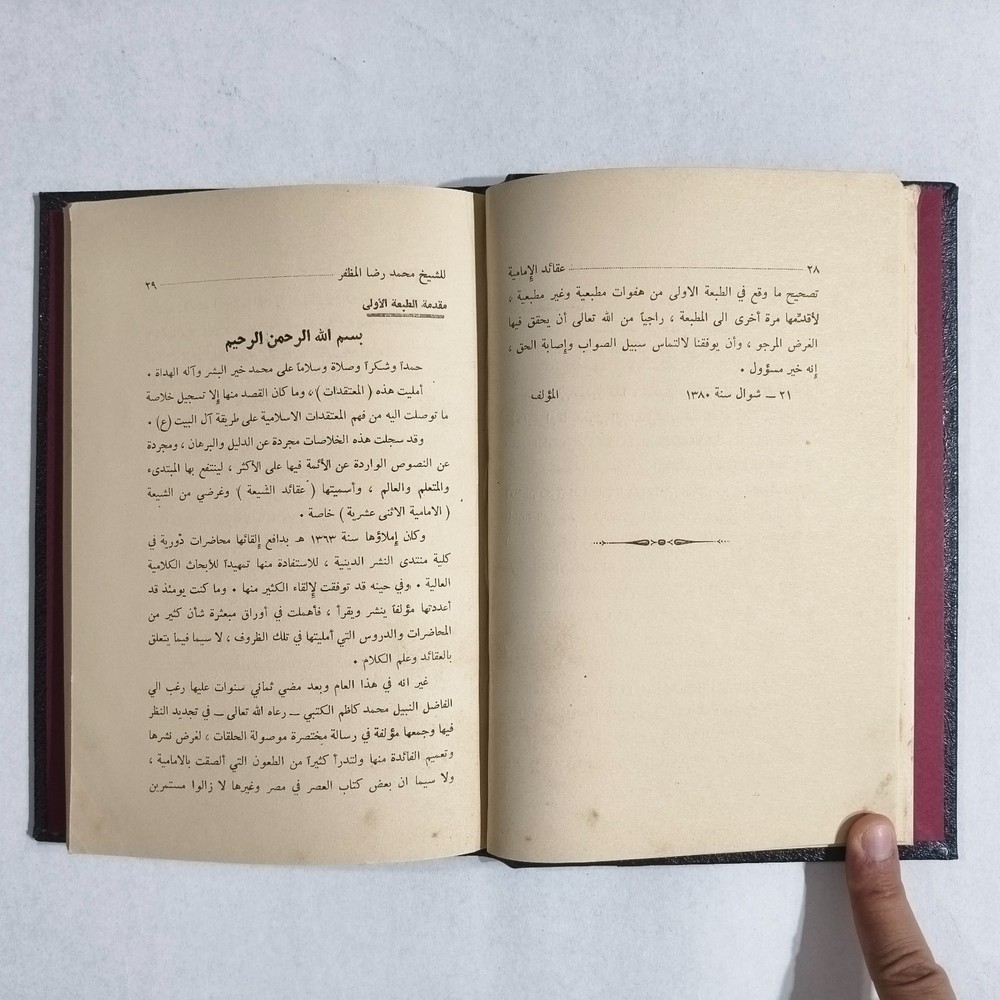 ٢٨ عقائد الإمامية
تصحيح ما وقع في الطبعة الاولى من هفوات مطبعية وغير مطبعية ،
لأقدمها مرة أخرى الى المطبعة ، راجياً من الله تعالى أن يحقق فيها
الغرض المرجو ، وأن يوفقنا لالتماس سبيل الصواب وإصابة الحق ،
إنه خير مسؤول .
٢١ ــ شوال سنة ١٣٨٠ المؤلف
للشيخ محمد رضا المظفر ٢٩
مقدمة الطبعة الاولى
بسم الله الرحمن الرحيم
حمداً وشكراً وصلاة وسلاماً على محمد خير البشر وآله الهداة .
أمليت هذه ( المعتقدات ) ، وما كان القصد منها إلا تسجيل خلاصة
ما توصلت اليه من فهم المعتقدات الاسلامية على طريقة آل البيت (ع) .
وقد سجلت هذه الخلاصات مجردة عن الدليل والبرهان ، ومجردة
عن النصوص الواردة عن الأئمة فيها على الأكثر ، لينتفع بها المبتدىء
والمتعلم والعالم ، وأسميتها ( عقائد الشيعة ) وغرضي من الشيعة
( الامامية الاثنى عشرية ) خاصة .
وكان إملاؤها سنة ١٣٦٣ هـ بدافع إلقائها محاضرات دورية في
كلية منتدى النشر الدينية ، للاستفادة منها تمهيداً للأبحاث الكلامية
العالية . وفي حينه قد توفقت لإلقاء الكثير منها . وما كنت يومئذ قد
أعددتها مؤلفاً ينشر ويقرأ ، فأهملت في أوراق مبعثرة شأن كثير من
المحاضرات والدروس التي أمليتها في تلك الظروف ، لا سيما فيما يتعلق
بالعقائد وعلم الكلام .
غير انه في هذا العام وبعد مضي ثماني سنوات عليها رغب الي
الفاضل النبيل محمد كاظم الكتبي ــ رعاه الله تعالى ــ في تجديد النظر
فيها وجمعها مؤلفة في رسالة مختصرة موصولة الحلقات ، لغرض نشرها
وتعميم الفائدة منها ولتدرأ كثيراً من الطعون التي ألصقت بالامامية ،
ولا سيما ان بعض كتاب العصر في مصر وغيرها لا زالوا مستمرين